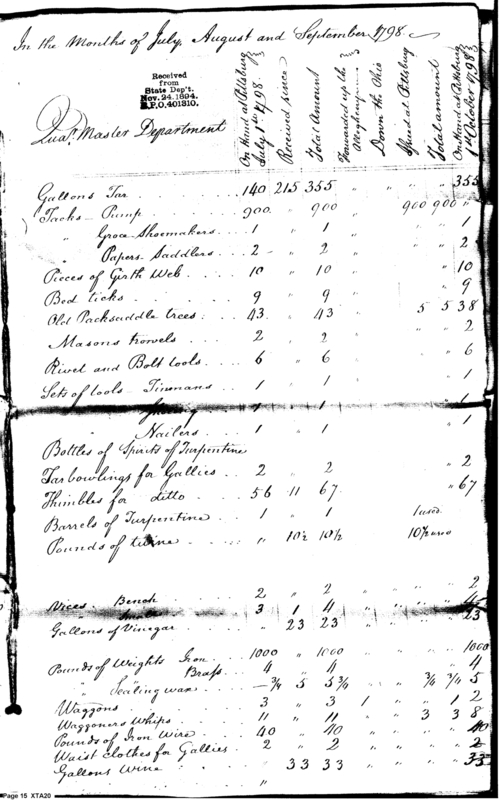 In the Months of July, August and September 1798.
Received
from
State Dep't.
Nov. 24.1894.
R.P.O.401310.
Quar. Master Department
On Hand at Pittsburg July 1st 1798.
Received since
Total Amount
Forwarded up the Alleghany
Down the Ohio
Total amount
On Hand at Pittsburg 1st October 1798
Gallons Tar 140 215 355 " " " 355
Tacks Pump 900 " 900 900 900 "
" Groce Shoemakers 1 " 1 " 1
" Papers Saddlers 2 " 2 " 2
Pieces of Girth Web 10 " 10 " 10
Bed ticks 9 " 9 " 9
Old Packsaddle trees 43 " 43 5 5 38
Masons trowels 2 " 2 " 2
Rivet and Bolt tools 6 " 6 " 6
Sets of tools Tinmans 1 " 1 " 1
1 " 1 " 1
" Nailers 1 " 1 " 1
Bottles of Spirits of Turpentine
Tarbowlings for Gallies 2 " 2 " 2
Thimbles for ditto 56 11 67 " 67
Barrels of Turpentine 1 " 1 1 used
Pounds of twine " 10½ 10½ 10½ used
Vices Bench 2 " 2 " " " " 2
" Small 3 1 4 " " " "
Gallons of Vinegar " 23 23 " " " " 23
Pounds of Weights Iron 1000 " 1000 " " " " 1000
" Brass 4 " 4 " " " " 4
" Sealing wax ¾ 5 5¾ " " ¾ ¾ 5
Waggons 3 " 3 1 " " 1 2
Waggoners Whips 11 " 11 " " 3 3 8
Pounds of Iron Wire 40 " 40 " " " " 40
Waist clothes for Gallies 2 " 2 " " " " 2
Gallons Wine " 33 33 " " " " 33
Page 15 XTA20